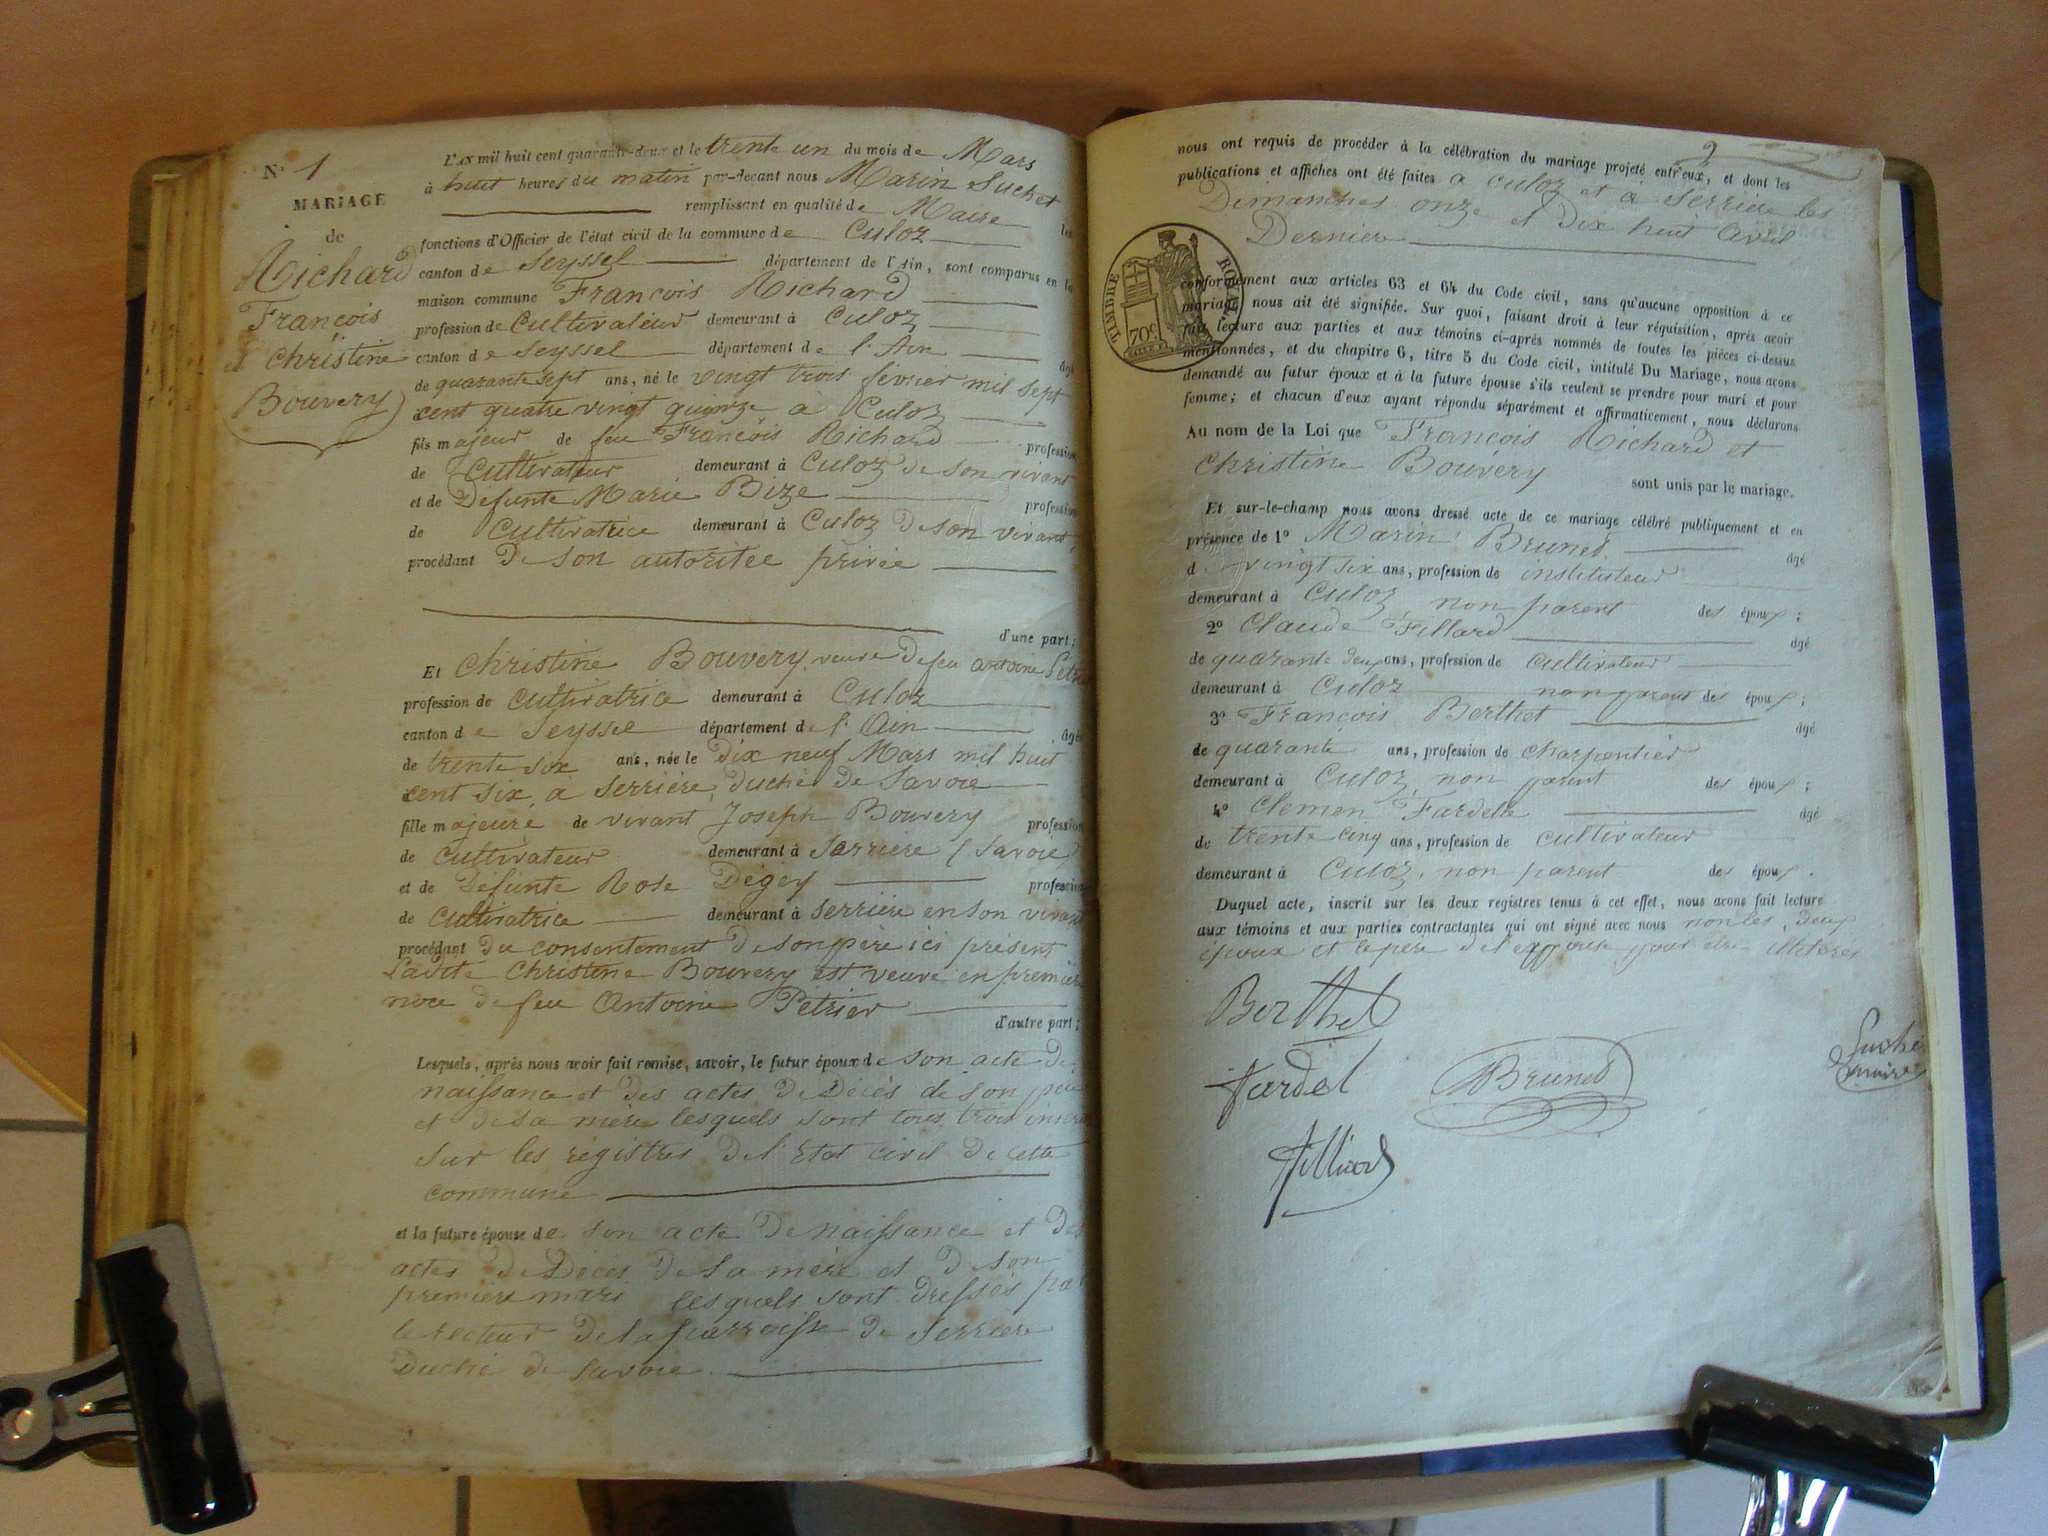 N° 1
MARIAGE
de
Richard
François
et Christine
Bouvery
L'AN mil huit cent quarante-deux et le trente un du mois de Mars
à huit heures du matin par-devant nous Marin Suchet
remplissant en qualité de Maire les
fonctions d'Officier de l'état civil de la commune de Culoz
canton de Seyssel département de l'Ain, sont comparus en la
maison commune François Richard
profession de Cultivateur demeurant à Culoz
canton de Seyssel département de l'Ain âgé
de quarante sept ans, né le vingt trois fevrier mil sept
cent quatre vingt quinze à Culoz
fils majeur de feu François Richard profession
de Cultivateur demeurant à Culoz de son vivant
et de Defunte Marie Bize profession
de Cultivatrice demeurant à Culoz de son vivant,
procédant De son autoritée privée
d'une part;
Et Christine Bouvery, veuve de feu antoine Petrie
profession de cultivatrice demeurant à Culoz
canton de Seyssel département de l'Ain âgée
de trente six ans, née le dix neuf Mars mil huit
cent six, à serriére, duché de Savoie
fille majeure de vivant Joseph Bouvery profession
de cultivateur demeurant à serriere (Savoie)
et de Défunte Rose Dégey profession
de cultivatrice demeurant à serriere en son vivant
procédant du consentement de son père ici présent
Ladite Christine Bouvery est veuve en premiere
noce de feu Antoine Pétrier
d'autre part;
Lesquels, après nous avoir fait remise, savoir, le futur époux de son acte de
naissance et des actes de Décès de son pere
et de sa mère lesquels sont tous trois inscrit
sur les régistres de l'Etat civil de cette
commune
et la future épouse de son acte de naissance et des
actes de Décès de sa mère et de son
premiere mari lesquels sont dressés par
le recteur de la parroisse de Serriere
Duché de Savoie.
2
nous ont requis de procéder à la célébration du mariage projeté entr'eux, et dont les
publications et affiches ont été faites a culoz et à Serriere les
Dimanches onze et dix huit Avril
Dernier
TIMBRE ROYAL
70c
conformément aux articles 63 et 64 du Code civil, sans qu'aucune opposition à ce
mariage nous ait été signifiée. Sur quoi, faisant droit à leur réquisition, après avoir
fait lecture aux parties et aux témoins ci-après nommés de toutes les pièces ci-dessus
mentionnées, et du chapitre 6, titre 5 du Code civil, intitulé Du Mariage, nous avons
demandé au futur époux et à la future épouse s'ils veulent se prendre pour mari et pour
femme; et chacun d'eux ayant répondu séparément et affirmativement, nous déclarons
Au nom de la Loi que François Richard et
Christine Bouvery
sont unis par le mariage.
Et sur-le-champ nous avons dressé acte de ce mariage célébré publiquement et en
présence de 1° Marin Brunet âgé
de vingt six ans, profession de instituteur
demeurant à Culoz, non parent des époux;
2° Claude Fillard âgé
de quarante deux ans, profession de cultivateur
demeurant à Culoz non parent des époux;
3° François Berthet âgé
de quarante ans, profession de charpentier
demeurant à Culoz, non parent des époux;
4° Clemen Fardelle âgé
de trente cinq ans, profession de cultivateur
demeurant à Culoz, non parent des époux.
Duquel acte, inscrit sur les deux registres tenus à cet effet, nous avons fait lecture
aux témoins et aux parties contractantes qui ont signé avec nous non les deux
époux et le père de l'epouse pour être illitéres
Berthet
Fardel
Brunet
Suchet
maire
Filliard